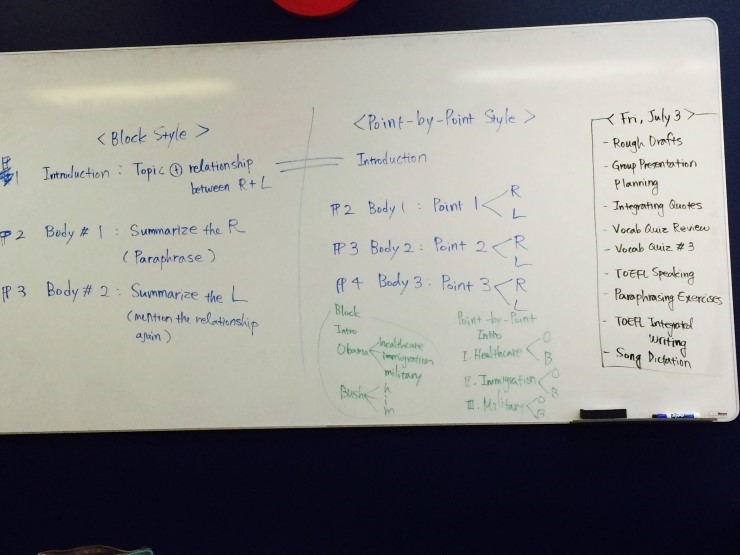 < Block Style >
¶1 Introduction : Topic ⊕ relationship
between R + L
¶2 Body # 1 : Summarize the R
( Paraphrase )
¶3 Body # 2 : Summarize the L
(mention the relationship
again)
<Point-by-Point Style >
Introduction
¶2 Body 1 : Point 1 < R
L
¶3 Body 2 : Point 2 < R
L
¶4 Body 3 : Point 3 < R
L
Block
Intro
Obama < healthcare
immigration
military
Bush < h
i
m
Point-by-Point
Intro
I. Healthcare < O
B
II. Immigration < O
B
III. Military < O
B
< Fri, July 3 >
- Rough Drafts
- Group Presentation
Planning
- Integrating Quotes
- Vocab Quiz Review
- Vocab Quiz # 3
- TOEFL Speaking
- Paraphrasing Exercises
- TOEFL Integrated
Writing
- Song Dictation